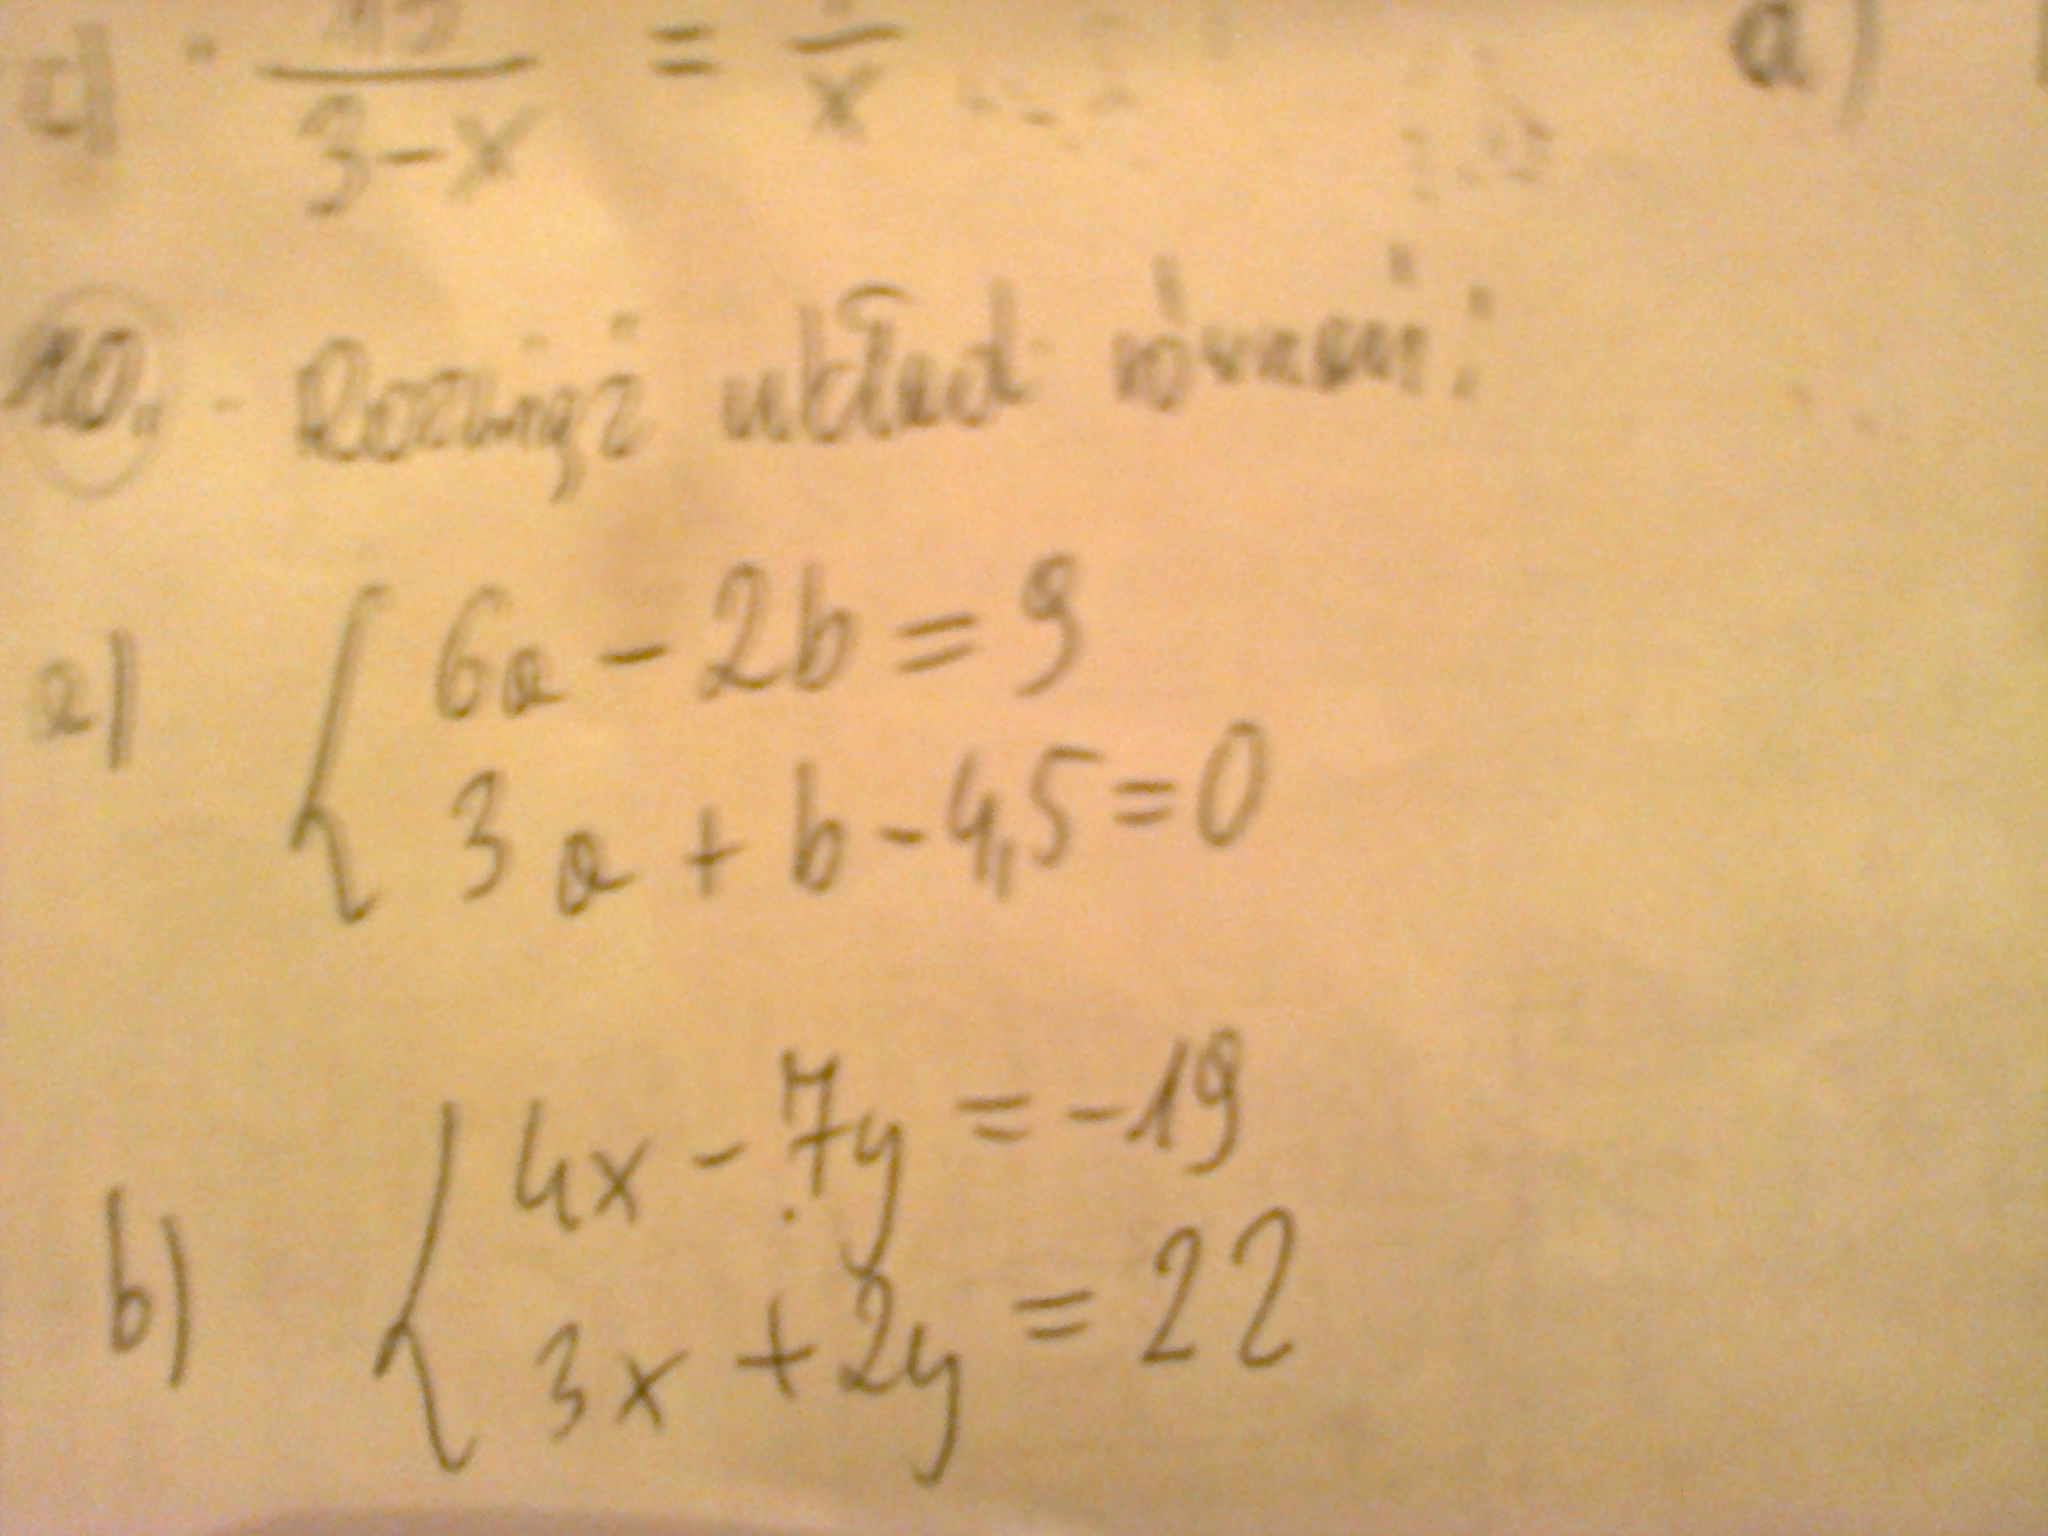 c) 15/(3-x) = /x a)
10. - Rozwiąż układ równań:
a) { 6a - 2b = 9
3a + b - 4,5 = 0
b) { 4x - 7y = -19
3x + 2y = 22